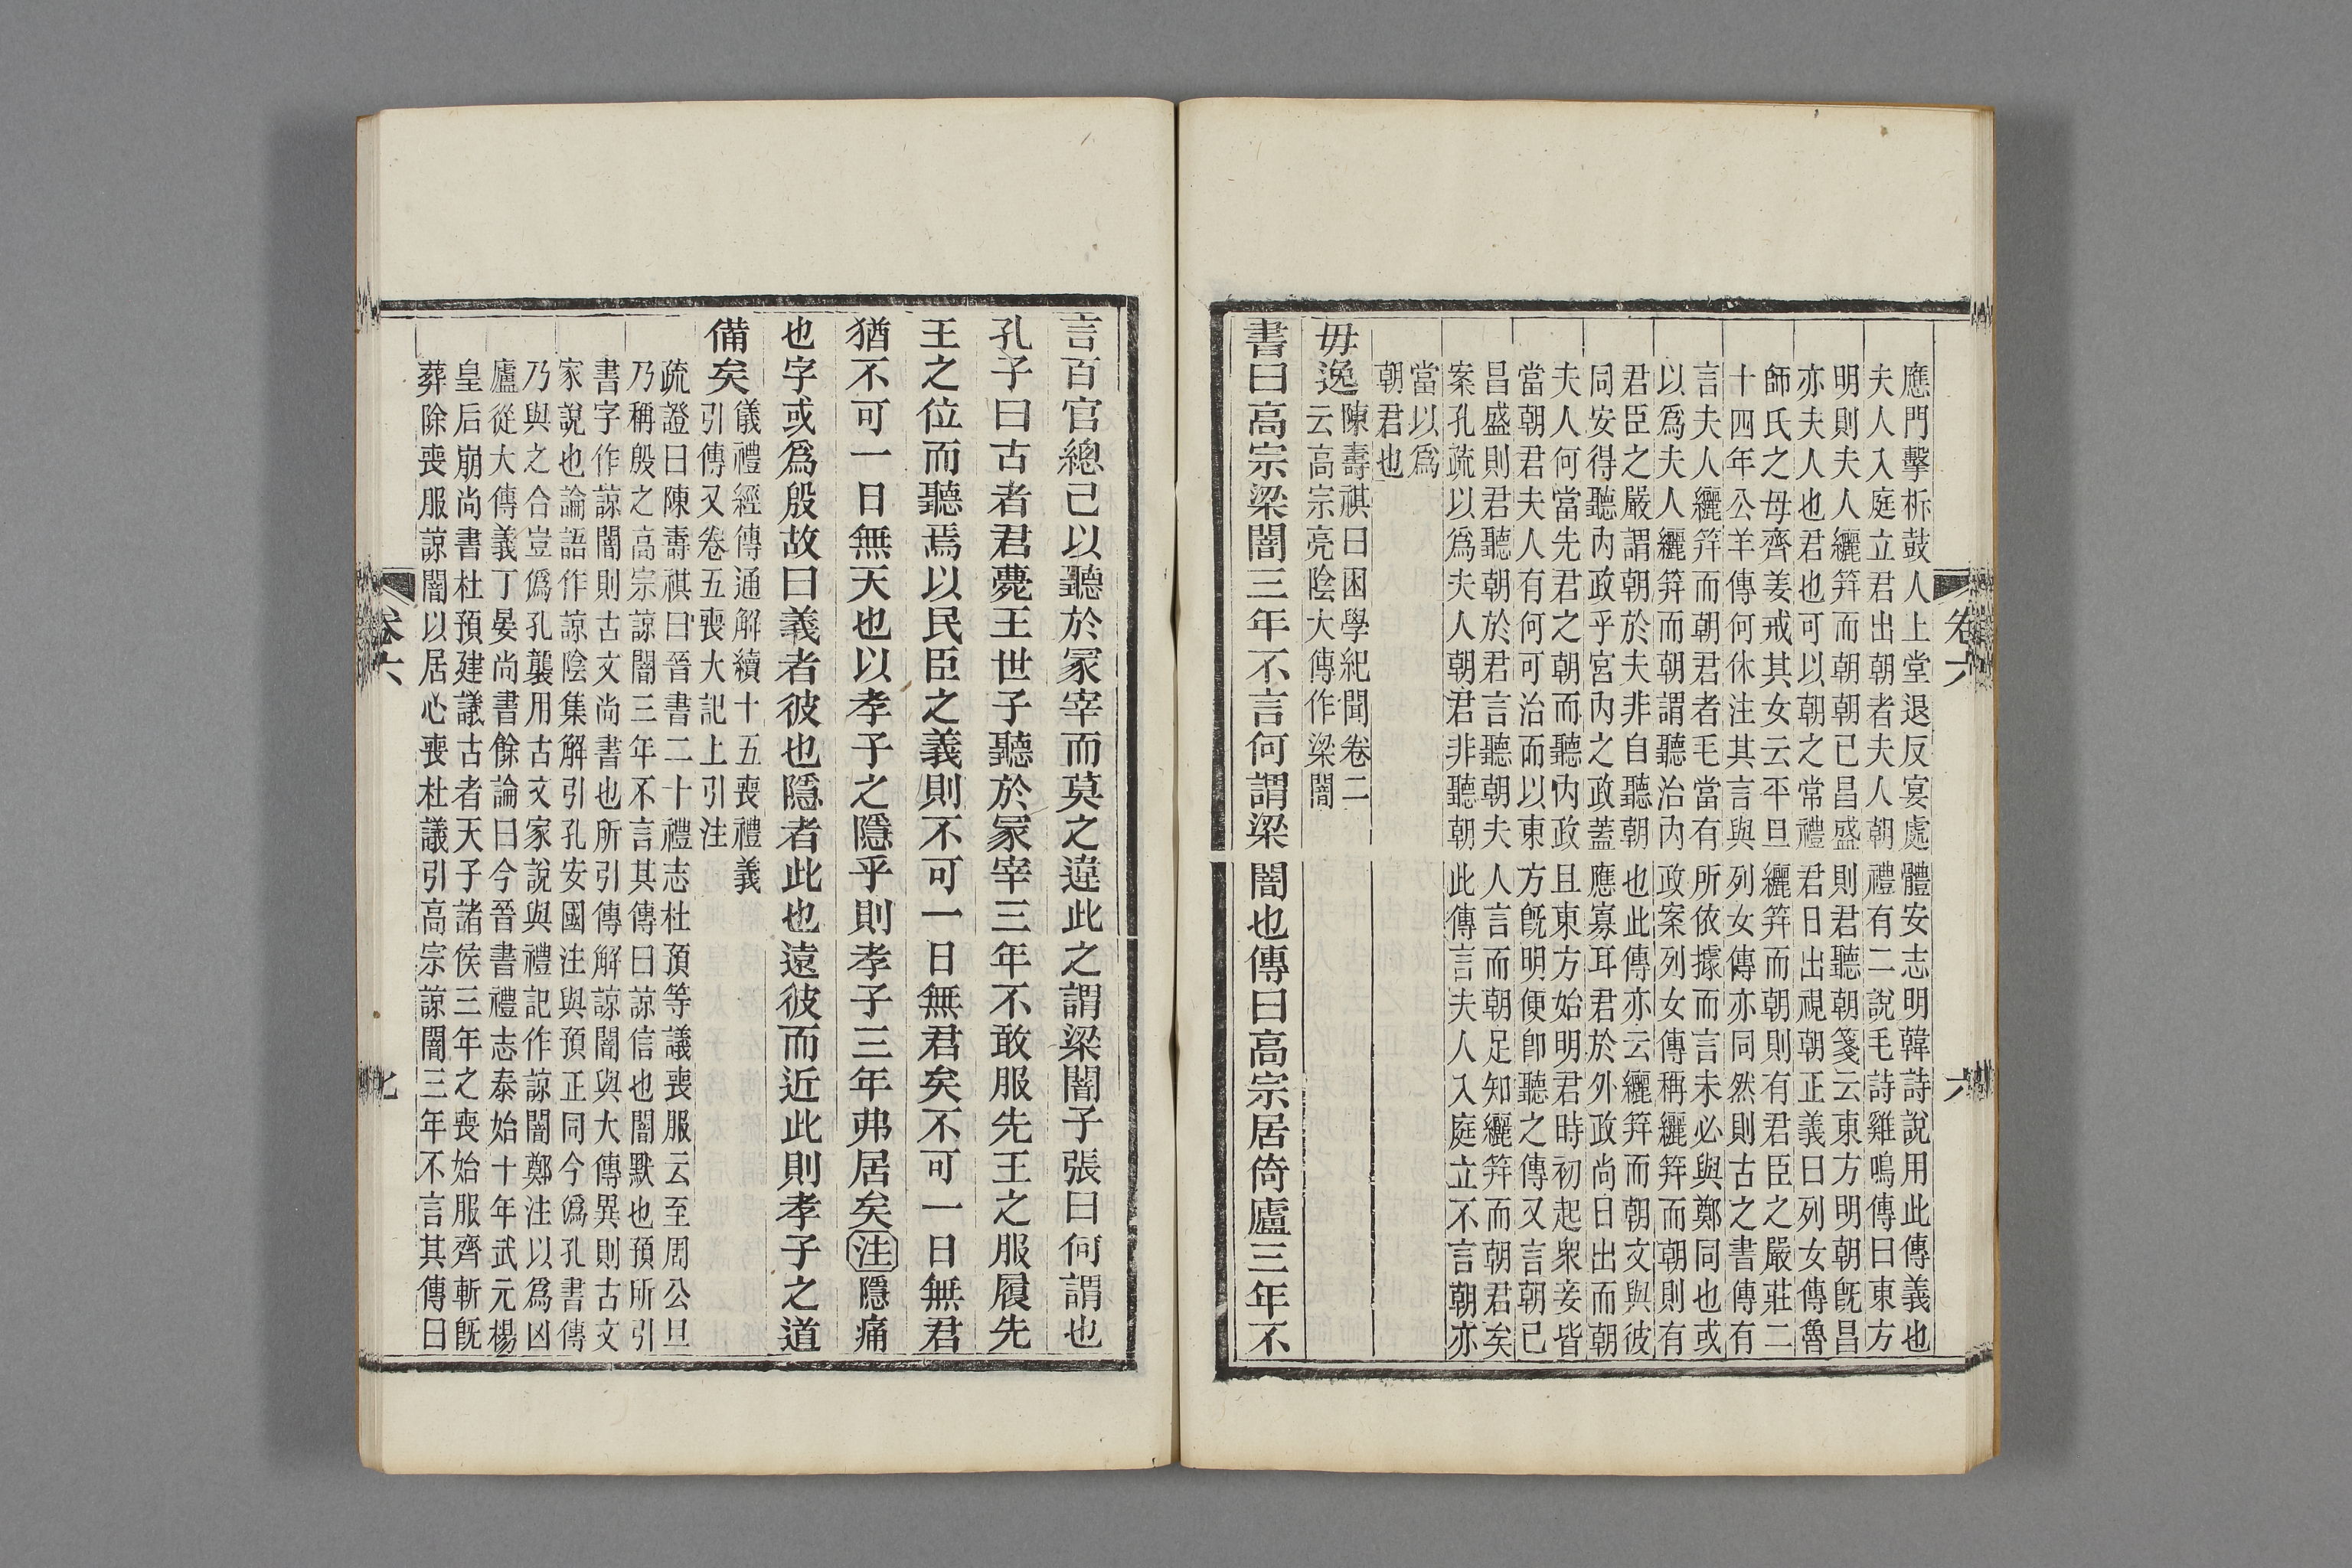 卷六
六
應門擊柝鼓人上堂退反宴處體安志明韓詩說用此傳義也
夫人入庭立君出朝者夫人朝禮有二說毛詩雞鳴傳曰東方
明則夫人纚笄而朝朝已昌盛則君聽朝箋云東方明朝既昌
亦夫人也君也可以朝之常禮君日出視朝正義曰列女傳魯
師氏之母齊姜戒其女云平旦纚笄而朝則有君臣之嚴莊二
十四年公羊傳何休注其言與列女傳亦同然則古之書傳有
言夫人纚笄而朝君者毛當有所依據而言未必與鄭同也或
以爲夫人纚笄而朝謂聽治內政案列女傳稱纚笄而朝則有
君臣之嚴謂朝於夫非自聽朝也此傳亦云纚笄而朝文與彼
同安得聽內政乎宮內之政蓋應寡耳君於外政尚日出而朝
夫人何當先君之朝而聽內政且東方始明君時初起衆妾皆
當朝君夫人有何可治而以東方既明便卽聽之傳又言朝已
昌盛則君聽朝於君言聽朝夫人言而朝足知纚笄而朝君矣
案孔疏以爲夫人朝君非聽朝此傳言夫人入庭立不言朝亦
當以爲
朝君也
毋逸
陳壽祺曰困學紀聞卷二
云高宗亮陰大傳作梁闇
書曰高宗梁闇三年不言何謂梁闇也傳曰高宗居倚廬三年不
言百官總己以聽於冢宰而莫之違此之謂梁闇子張曰何謂也
孔子曰古者君薨王世子聽於冢宰三年不敢服先王之服履先
王之位而聽焉以民臣之義則不可一日無君矣不可一日無君
猶不可一日無天也以孝子之隱乎則孝子三年弗居矣注隱痛
也字或爲殷故曰義者彼也隱者此也遠彼而近此則孝子之道
備矣
儀禮經傳通解續十五喪禮義
引傳又卷五喪大記上引注
疏證曰陳壽祺曰晉書二十禮志杜預等議喪服云至周公旦
乃稱殷之高宗諒闇三年不言其傳曰諒信也闇默也預所引
書字作諒闇則古文尚書也所引傳解諒闇與大傳異則古文
家說也論語作諒陰集解引孔安國注與預正同今僞孔書傳
乃與之合豈僞孔襲用古文家說與禮記作諒闇鄭注以爲凶
廬從大傳義丁晏尚書餘論曰今晉書禮志泰始十年武元楊
皇后崩尚書杜預建議古者天子諸侯三年之喪始服齊斬既
葬除喪服諒闇以居心喪杜議引高宗諒闇三年不言其傳曰
卷六
七